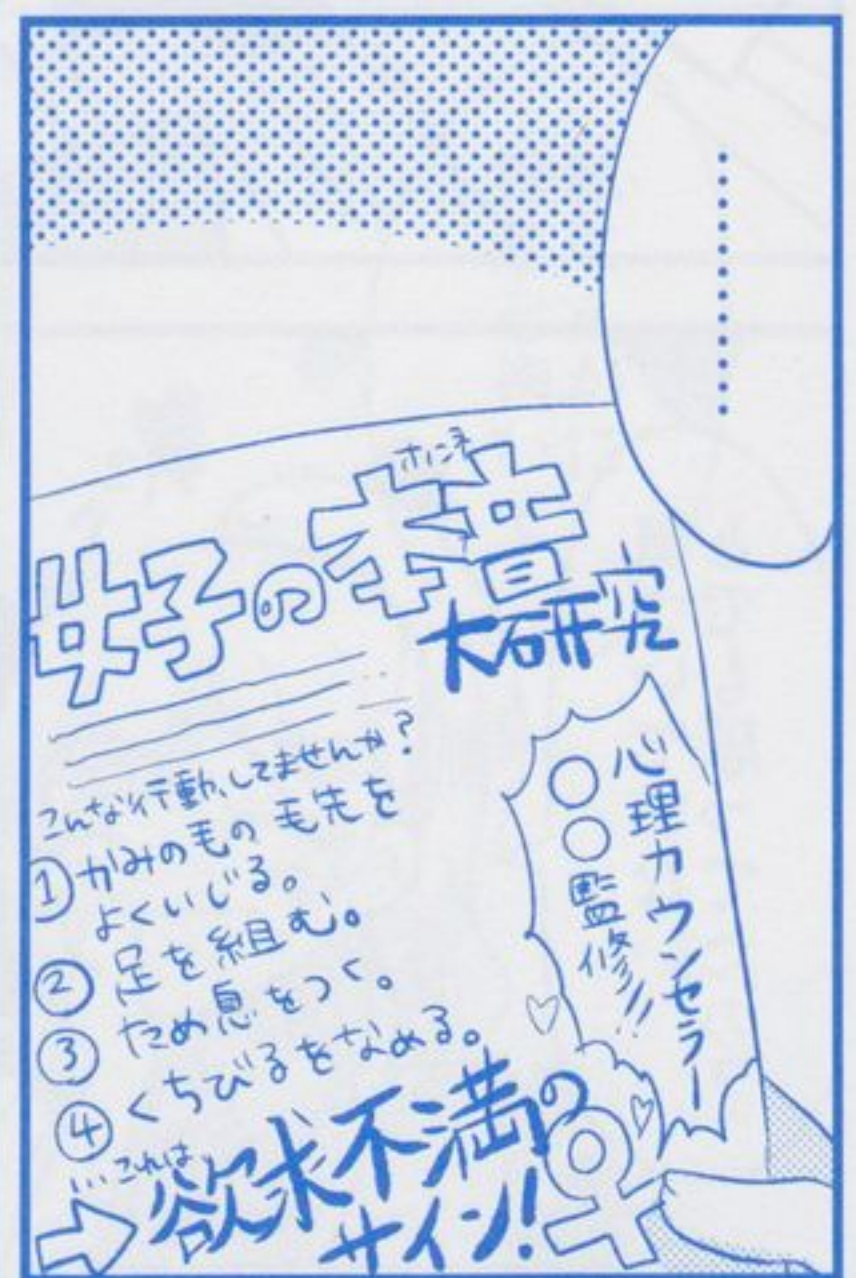 …………
女子の本音
ホンネ
大研究
心理カウンセラー
〇〇監修!!
こんな行動、してませんか?
①かみの毛の毛先を
よくいじる。
②足を組む。
③ため息をつく。
④くちびるをなめる。
…これは、
⇨欲求不満の
サイン!